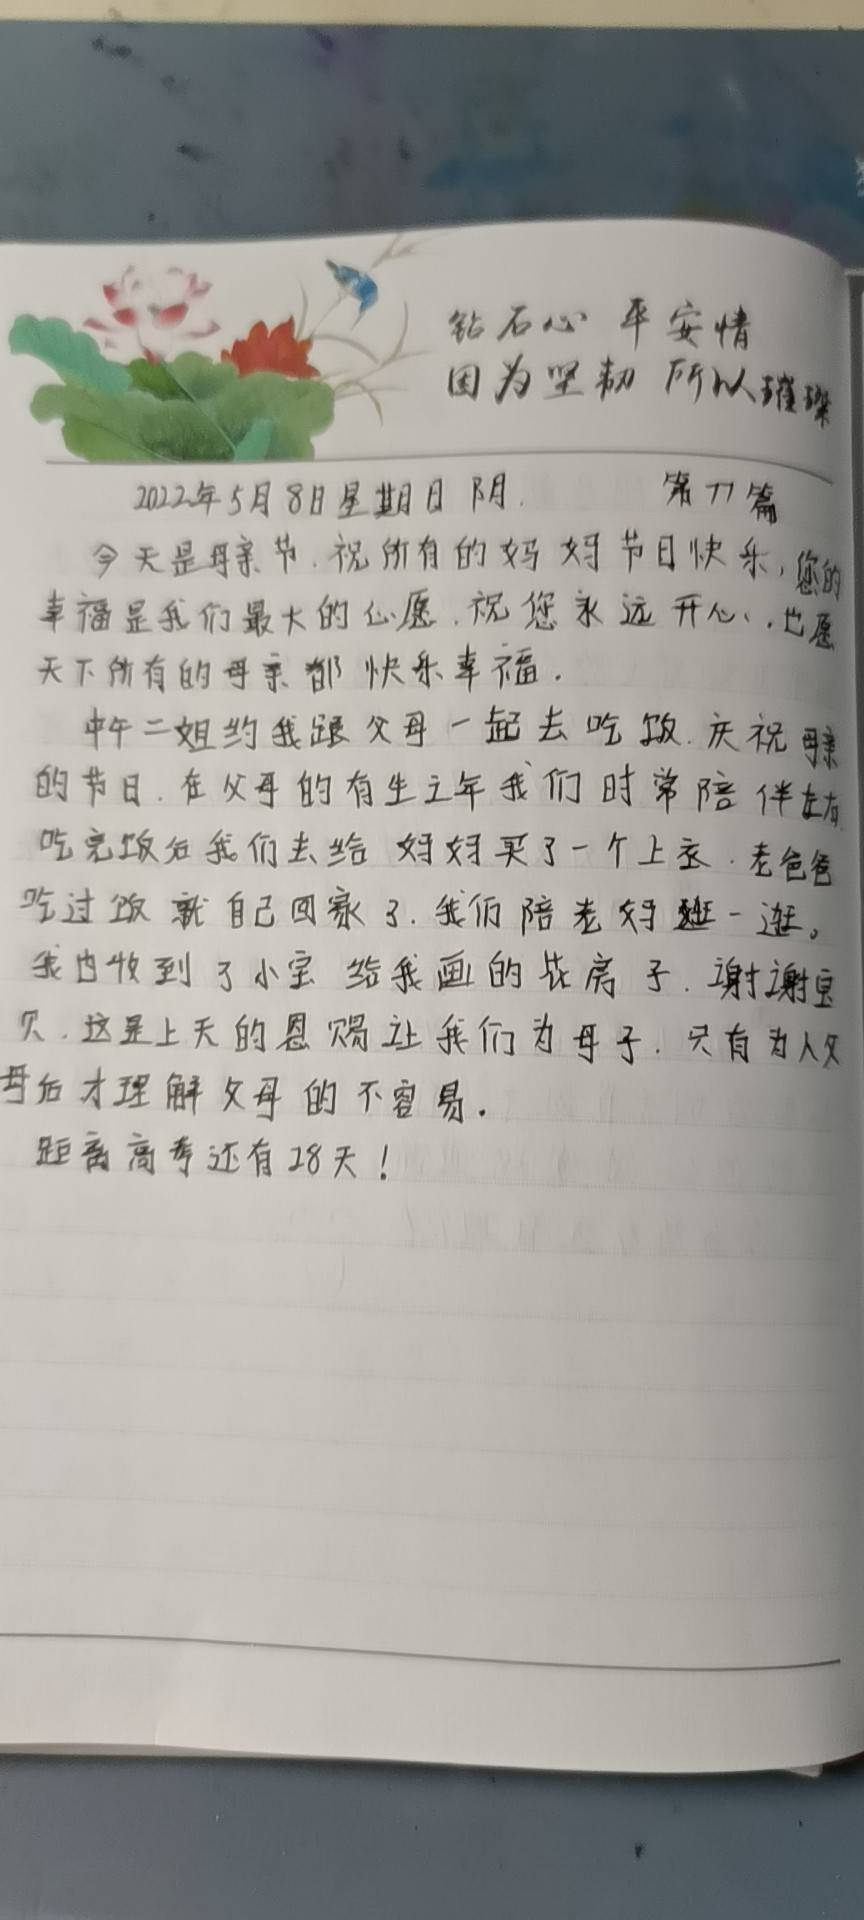 钻石心 平安情
因为坚韧 所以璀璨
2022年5月8日星期日 阴. 第77篇
今天是母亲节.祝所有的妈妈节日快乐,您的
幸福是我们最大的心愿.祝您永远开心、.也愿
天下所有的母亲都快乐幸福.
中午二姐约我跟父母一起去吃饭.庆祝母亲
的节日.在父母的有生之年我们时常陪伴左右.
吃完饭后我们去给妈妈买了一个上衣.老爸爸
吃过饭就自己回家了.我们陪老妈逛一逛。
我也收到了小宝给我画的花房子.谢谢宝
贝.这是上天的恩赐让我们为母子.只有为人父
母后才理解父母的不容易.
距离高考还有28天!